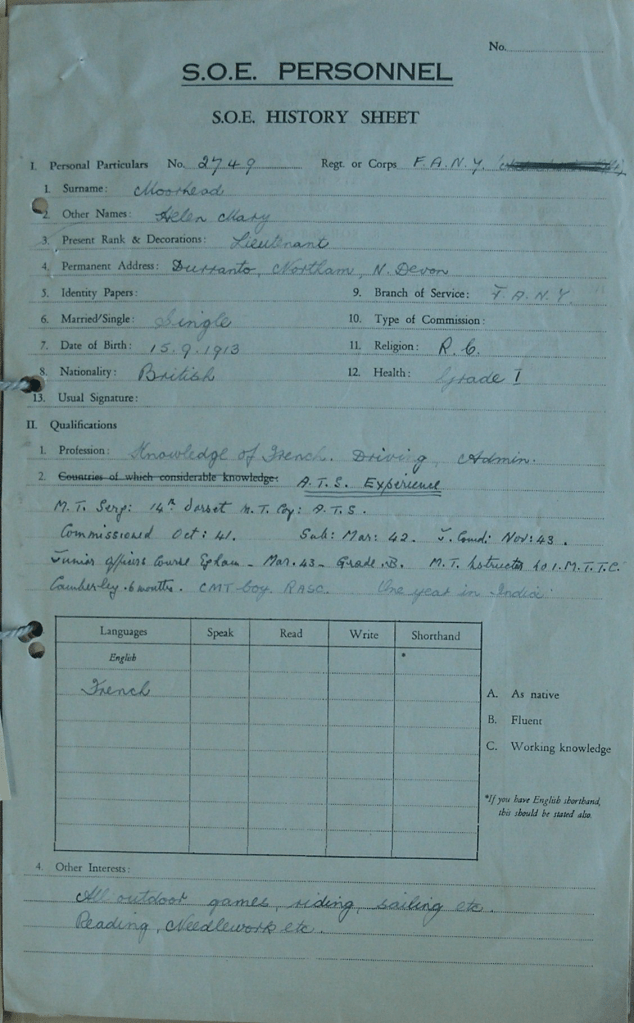 No.
S.O.E. PERSONNEL
S.O.E. HISTORY SHEET
I. Personal Particulars No. 2749 Regt. or Corps F.A.N.Y.
1. Surname: Moorhead
2. Other Names: Helen Mary
3. Present Rank & Decorations: Lieutenant
4. Permanent Address: Durranto, Northam, N. Devon
5. Identity Papers: 9. Branch of Service: F.A.N.Y.
6. Married/Single: Single 10. Type of Commission:
7. Date of Birth: 15.9.1913 11. Religion: R.C.
8. Nationality: British 12. Health: Grade I
13. Usual Signature:
II. Qualifications
1. Profession: Knowledge of French. Driving, Admin.
2. Countries of which considerable knowledge: A.T.S. Experience
M.T. Serg: 14th Dorset M.T. Coy: A.T.S.
Commissioned Oct: 41. Sub: Mar: 42. J. Comd: Nov: 43.
Junior Officers Course Egham - Mar. 43 - Grade .B. M.T. Instructor no 1. M.T.T.C.
Camberley. 6 months. CMT Coy. RASC. One year in India.
Languages Speak Read Write Shorthand
English *
French
A. As native
B. Fluent
C. Working knowledge
*If you have English shorthand,
this should be stated also.
4. Other Interests:
All outdoor games, riding, sailing etc.
Reading, Needlework etc.